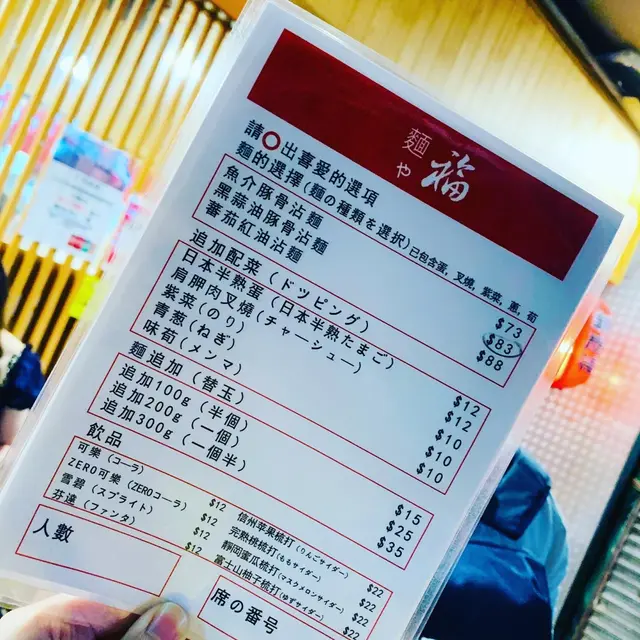 麺や福
請○出喜愛的選項
麵的選擇(麵の種類を選択)已包含蛋, 叉燒, 紫菜, 蔥, 筍
魚介豚骨沾麵 $73
黑蒜油豚骨沾麵 $83
蕃茄紅油沾麵 $88
追加配菜(ドッピング)
日本半熟蛋(日本半熟たまご) $12
肩胛肉叉燒(チャーシュー) $12
紫菜(のり) $10
青蔥(ねぎ) $10
味筍(メンマ) $10
麵追加(替玉)
追加100g(半個) $15
追加200g(一個) $25
追加300g(一個半) $35
飲品
可樂(コーラ) $12
ZERO可樂(ZEROコーラ) $12
雪碧(スプライト) $12
芬達(ファンタ) $12
信州苹果梳打(りんごサイダー) $22
完熟桃梳打(ももサイダー) $22
靜岡蜜瓜梳打(マスクメロンサイダー) $22
富士山柚子梳打(ゆずサイダー) $22
人數
席の番号